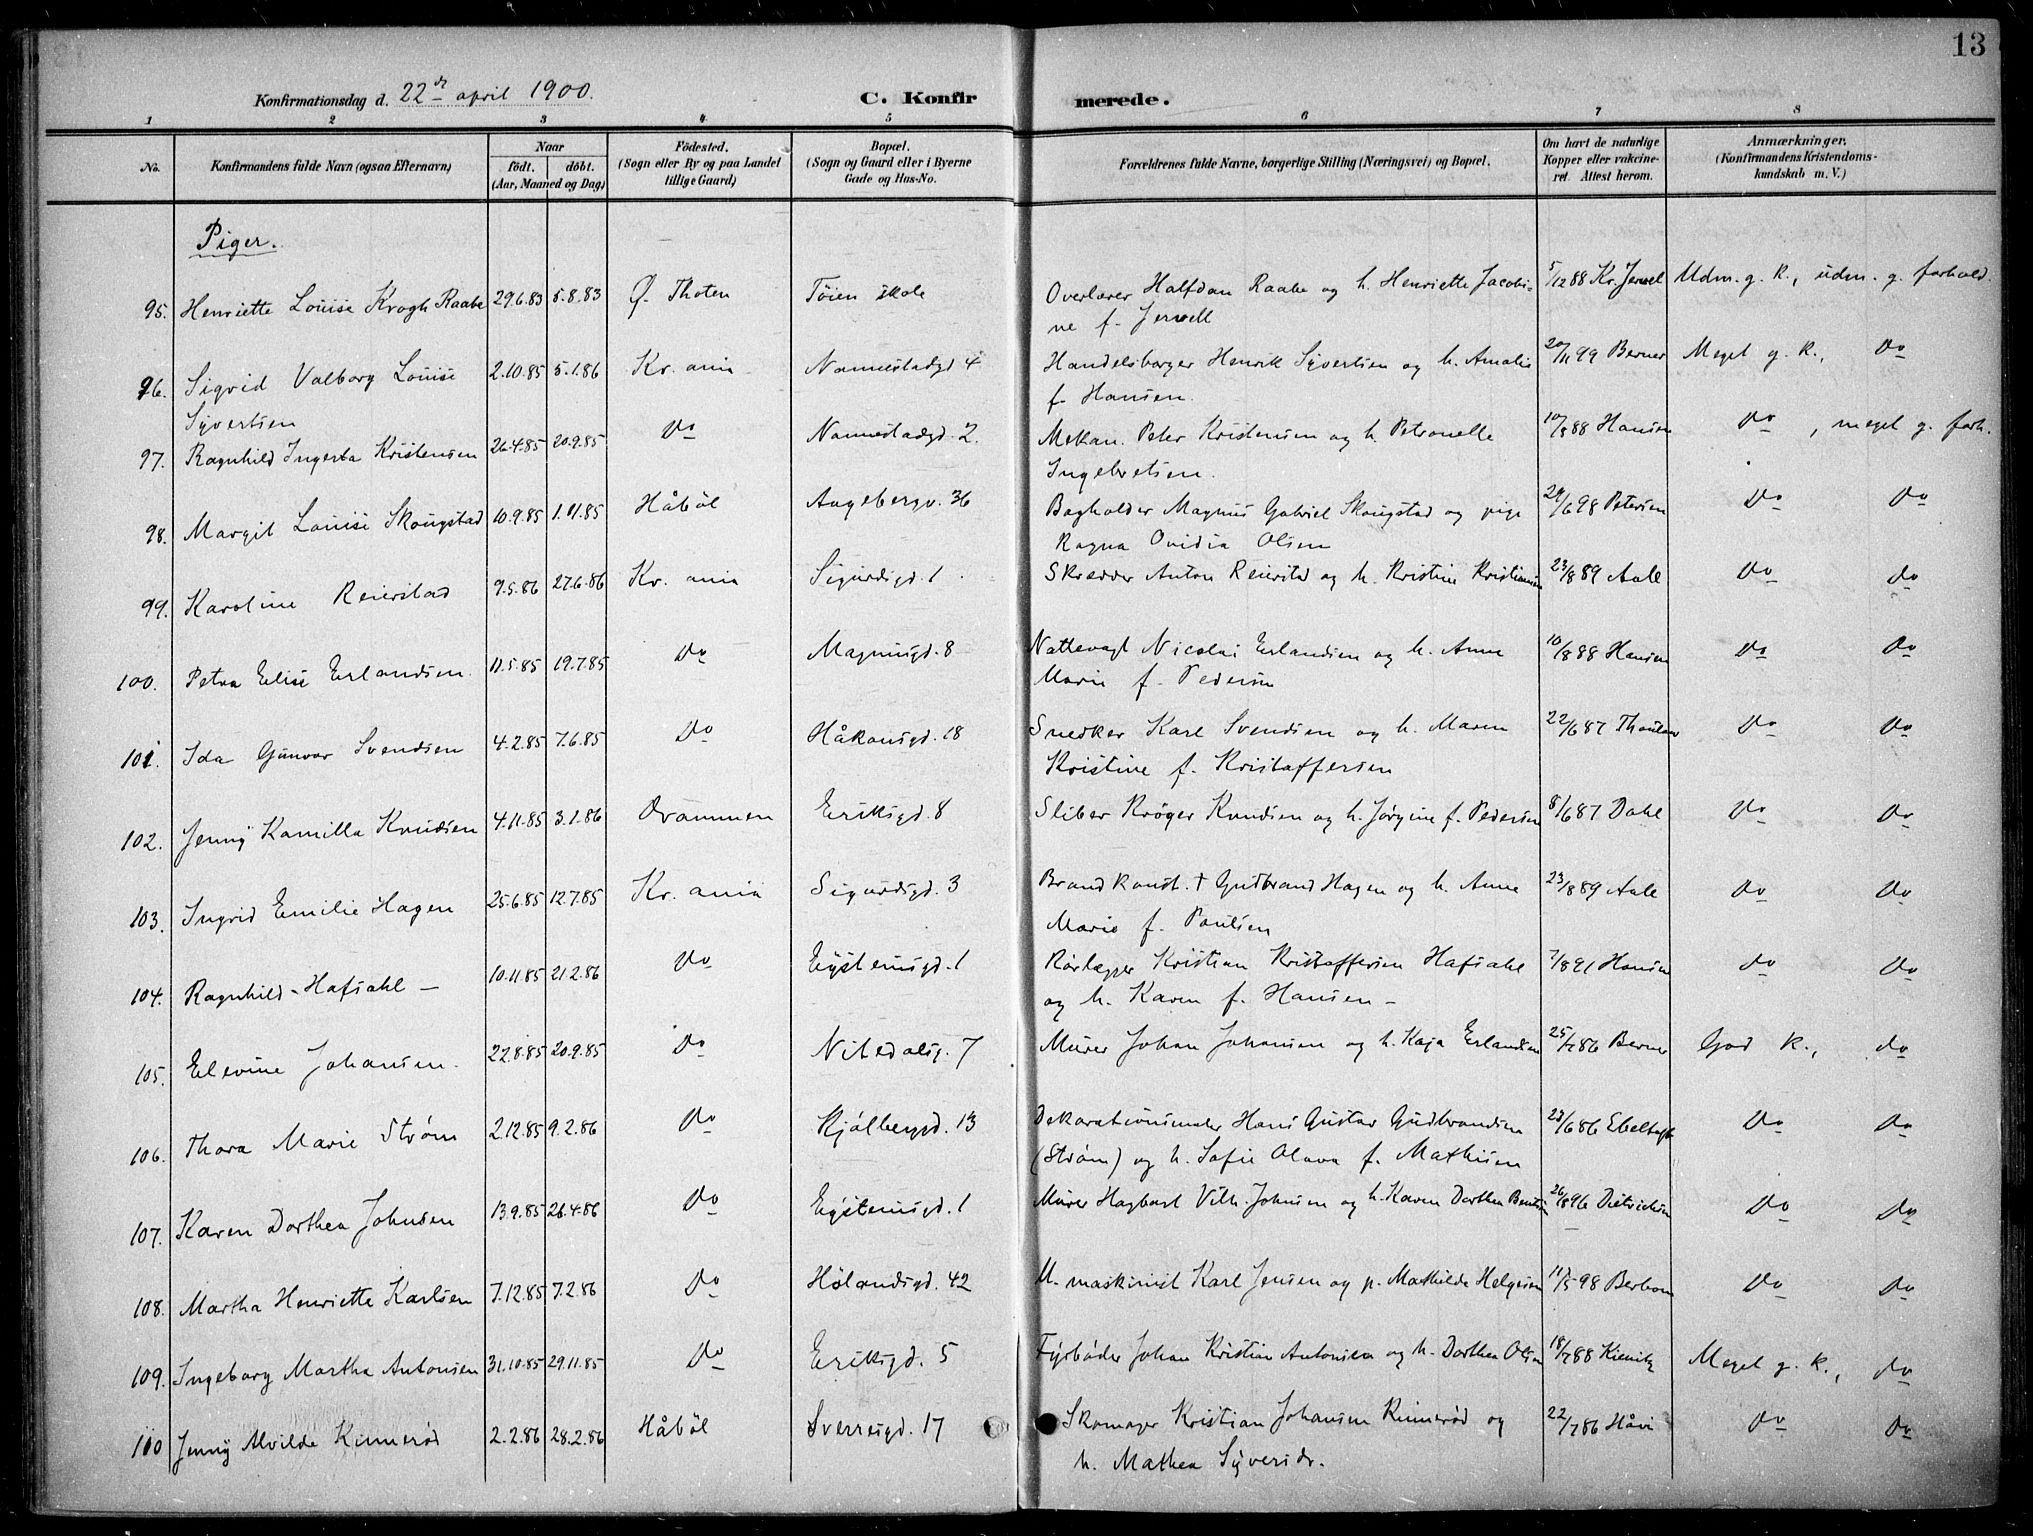 13
Konfirmationsdag d. 22de april 1900.
C. Konfirmerede.
1 2 3 4 5 6 7 8
No.
Konfirmandens fulde Navn (ogsaa Efternavn)
Naar
født. døbt.
(Aar, Maaned og Dag)
Fødested.
(Sogn eller By og paa Landet
tillige Gaard)
Bopæl.
(Sogn og Gaard eller i Byerne
Gade og Hus-No.
Forældrenes fulde Navne, borgerlige Stilling (Næringsvei) og Bopæl.
Om havt de naturlige
Kopper eller vakcine-
ret. Attest herom.
Anmærkninger.
(Konfirmandens Kristendoms-
kundskab m. V.)
Piger.
95. Henriette Louise Krogh Raabe 29.6.83 5.8.83 Ø. Thoten Töien skole Overlærer Halfdan Raabe og h. Henriette Jacobi- 5/12 88 Kr. Jervel Udm. g. k., udm. g. forhold.
ne f. Jervell
96. Sigrid Valborg Louise 2.10.85 5.1.86 Kr. ania Nannestadgd 4 Handelsborger Henrik Syvertsen og h. Amalie 20/11 99 Berner Meget g. k., Do
Syvertsen f. Hansen.
97. Ragnhild Ingerta Kristensen 26.4.85 20.9.85 Do Nannestadgd. 2. Mekan. Peter Kristensen og h. Petronelle 10/8 88 Hansen Do, meget g. forh.
Ingebretsen.
98. Margit Louise Skougstad 10.9.85 1.11.85 Håböl Aagebergv. 36 Bogholder Magnus Gabriel Skougstad og pige 24/6 98 Petersen Do Do
Ragna Ovidia Olsen
99. Karoline Reierstad 9.5.86 27.6.86 Kr. ania Sigurdsgd. 1 Skrædder Anton Reierstad og h. Kristine Kristiansen 23/8 89 Aall Do do
100. Petra Elise Erlandsen 11.5.85 19.7.85 Do Magnusgd. 8 Nattevagt Nicolai Erlandsen og h. Anne 10/8 88 Hansen Do Do
Marie f. Pedersen
101. Ida Gunvor Svendsen 4.2.85 7.6.85 Do Håkonsgd. 18 Snedker Karl Svendsen og h. Maren 22/6 87 Thoulow Do Do
Kristine f. Kristoffersen
102. Jenny Kamilla Knudsen 4.11.85 3.1.86 Drammen Eriksgd. 8 Sliber Kröger Knudsen og h. Jørgine f. Pedersen 8/6 87 Dahl Do Do
103. Ingrid Emilie Hagen 25.6.85 12.7.85 Kr. ania Sigurdsgd. 3 Brandkonst. † Gudbrand Hagen og h. Anne 23/8 89 Aall Do Do
Marie f. Paulsen
104. Ragnhild - Hafsahl - 10.11.85 21.2.86 Do Eystensgd. 1 Rörlægger Kristian Kristoffersen Hafsahl 7/8 91 Hansen Do Do
og h. Karen f. Hansen -
105. Elevine Johansen. 22.8.85 20.9.85 Do Nitedalsg. 7 Murer Johan Johansen og h. Kaja Erlandsen 25/7 86 Berner God k., do
106. Thora Marie Strøm 2.12.85 9.2.86 Do Kjölberggd. 13 Dekorationsmaler Hans Gustav Gudbrandsen 23/6 86 Ebeltoft Do Do
(Strøm) og h. Sofie Olava f. Mathisen
107. Karen Dorthea Johnsen 13.9.85 26.4.86 Do Eystensgd. 1 Murer Hagbart Vilh. Johnsen og h. Karen Dorthea Bentsen 26/8 96 Dietrichsen Do Do
108. Martha Henriette Karlsen 7.12.85 7.2.86 Do Hölandsgd. 42 U. maskinist Karl Jensen og p. Mathilde Helgesen 11/5 98 Do Do
109. Ingeborg Martha Antonsen 31.10.85 29.11.85 Do Eriksgd. 5 Fyrbøder Johan Kristian Antonsen og h. Dorthea Olsen 18/7 88 Meget g. k., do
110 Jenny Alvilde Kinnerød 2.2.86 28.2.86 Håböl Sverresgd. 17 Skomager Kristian Johansen Kinnerød og 22/7 86 Do Do
h. Mathea Syversdr.